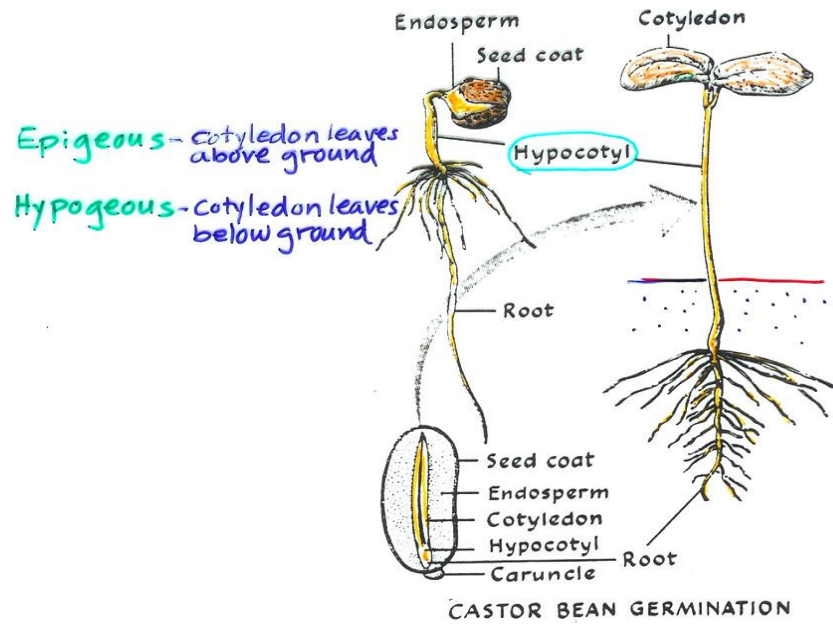 Endosperm
Seed coat
Cotyledon
Epigeous - cotyledon leaves
above ground
Hypocotyl
Hypogeous - cotyledon leaves
below ground
Root
Seed coat
Endosperm
Cotyledon
Hypocotyl
Root
Caruncle
CASTOR BEAN GERMINATION